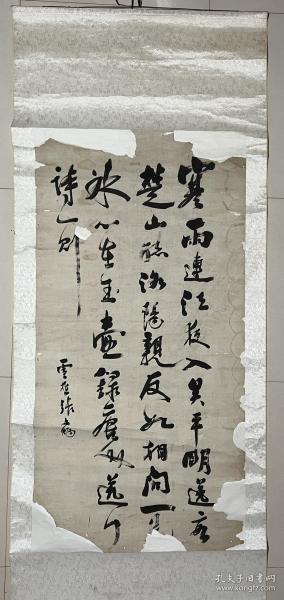 寒雨連江夜入吳平明送客
楚山孤洛陽親友如相問一片
冰心在玉壺錄唐人送行
詩一則
孔夫子旧书网